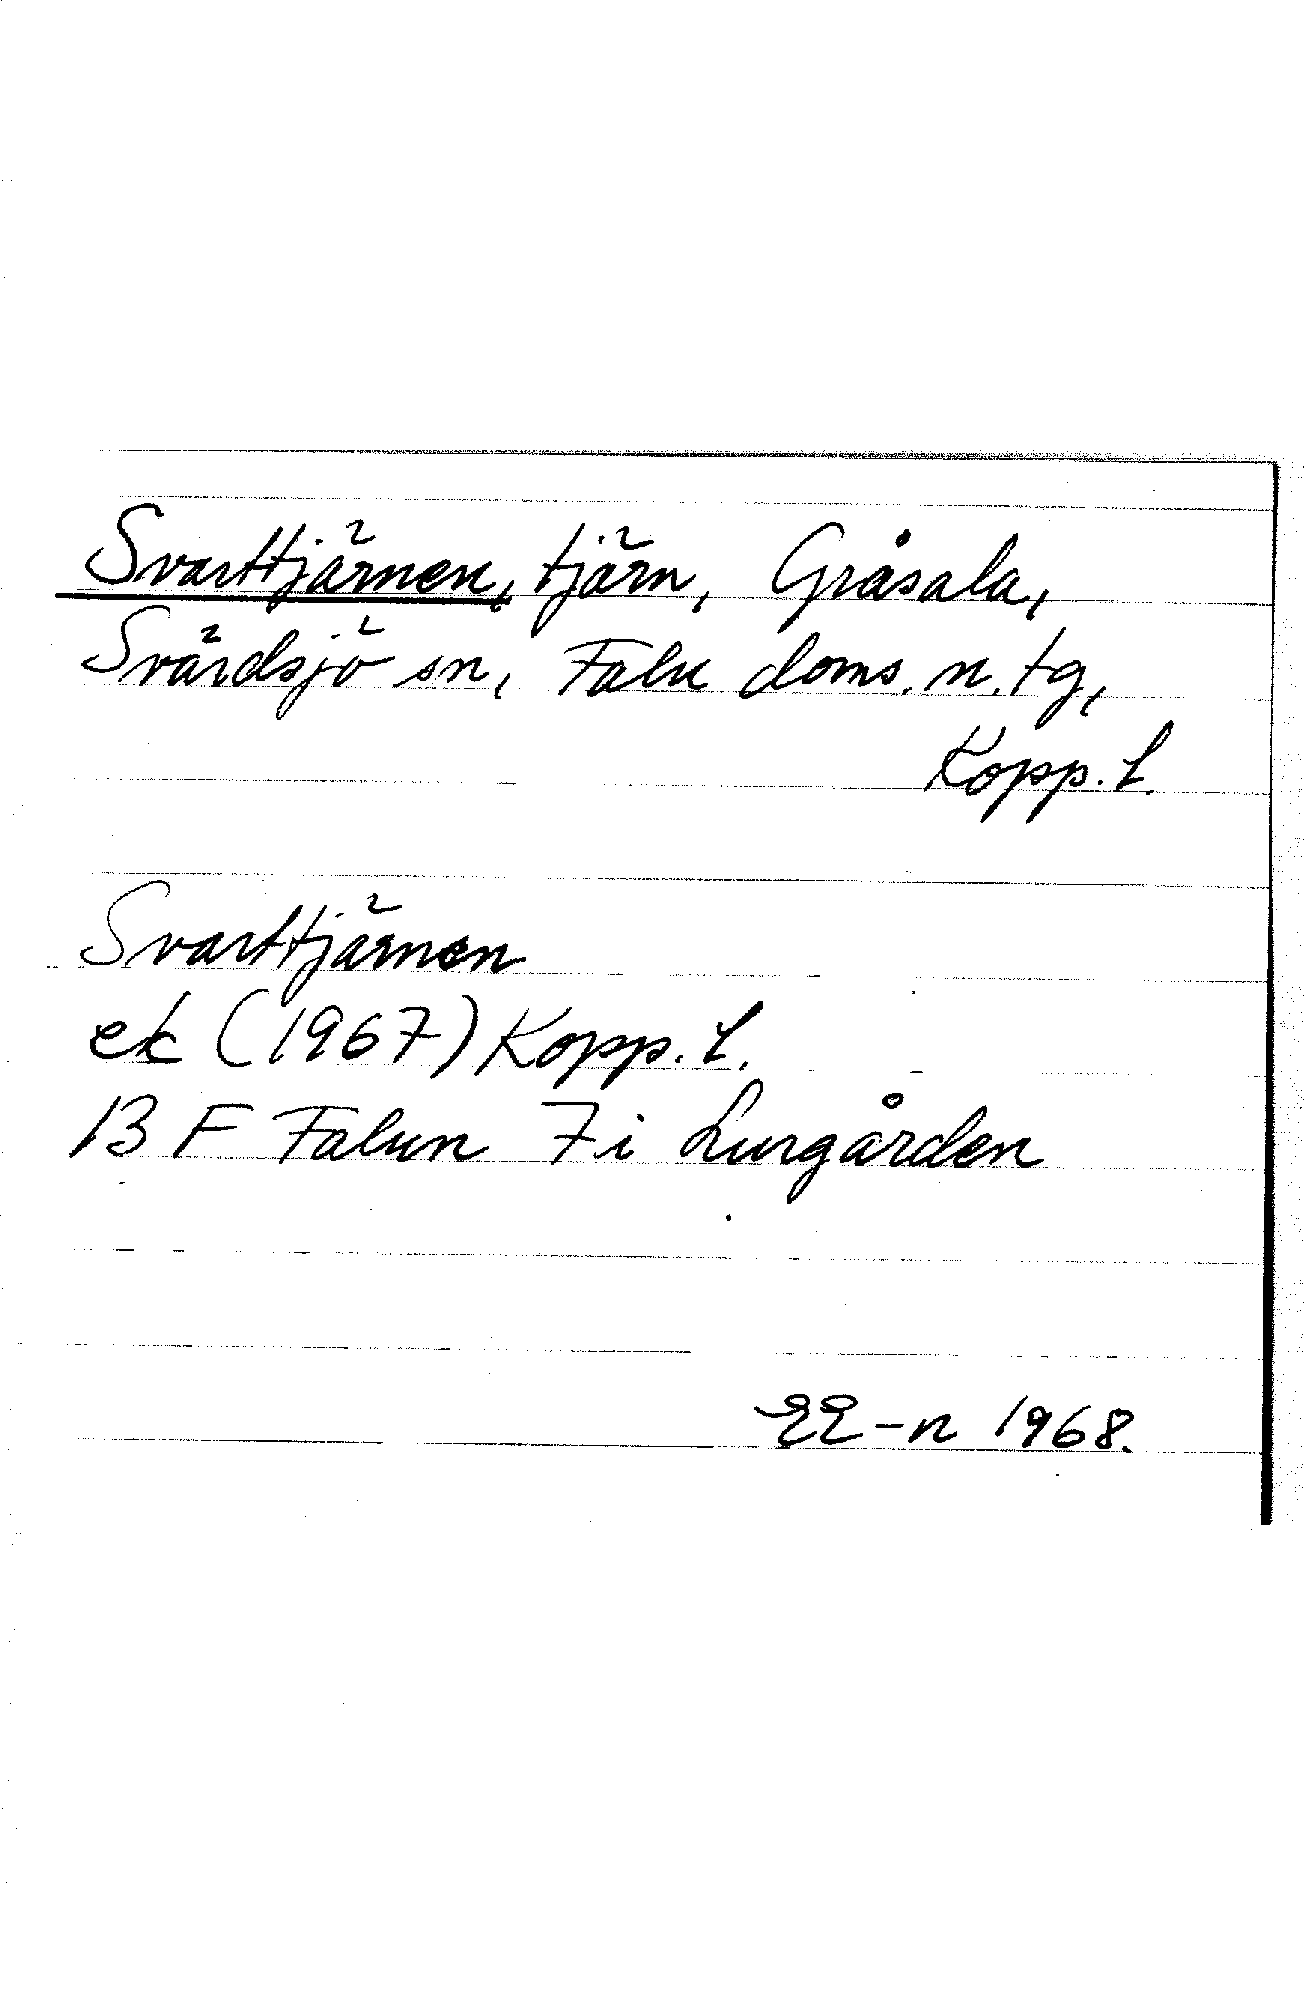 Svarttjärnen, tjärn, Gråsala,
Svärdsjö sn, Falu doms. n. tg,
Kopp. l.
Svarttjärnen
ek (1967) Kopp. l.
13 F Falun 7 i Lurgården
EE-n 1968.